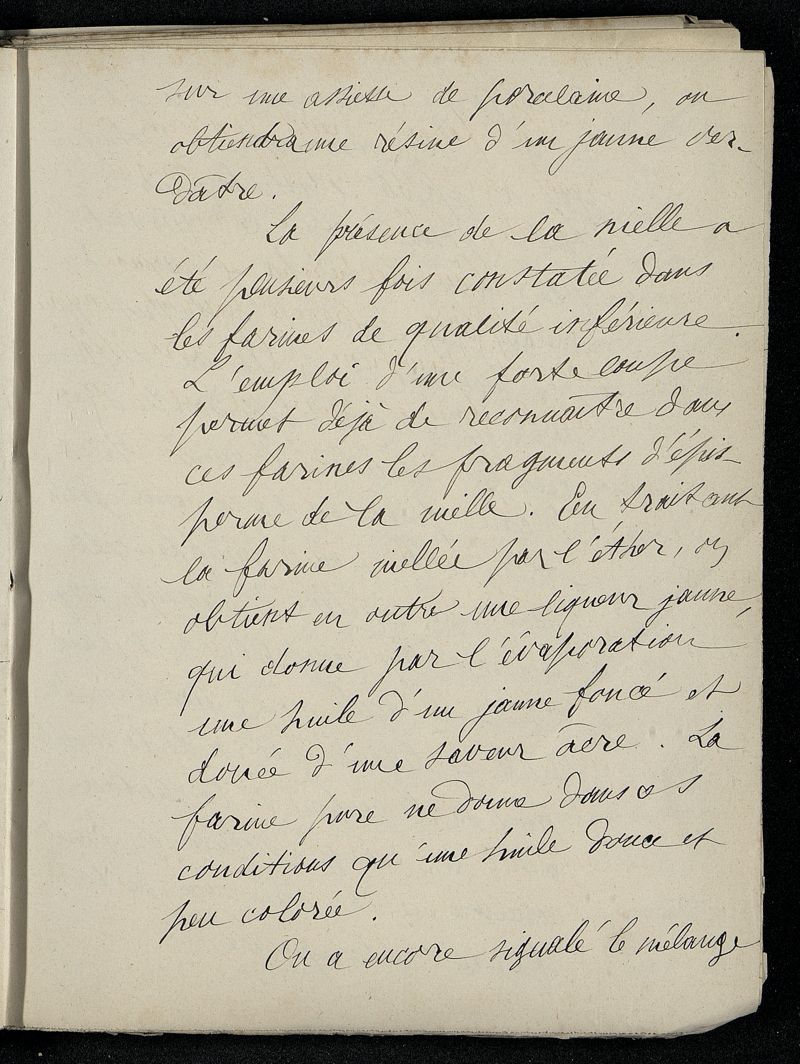 sur une assiette de porcelaine, on
obtiendra une résine d'un jaune ver-
dâtre.
La présence de la nielle a
été plusieurs fois constatée dans
les farines de qualité inférieure.
L'emploi d'une forte loupe
permet déjà de reconnaître dans
ces farines les fragments d'épis-
perme de la nielle. En traitant
la farine niellée par l'éther, on
obtient en outre une liqueur jaune,
qui donne par l'évaporation
une huile d'un jaune foncé et
douée d'une saveur âcre. La
farine pure ne donne dans ces
conditions qu'une huile douce et
peu colorée.
On a encore signalé le mélange